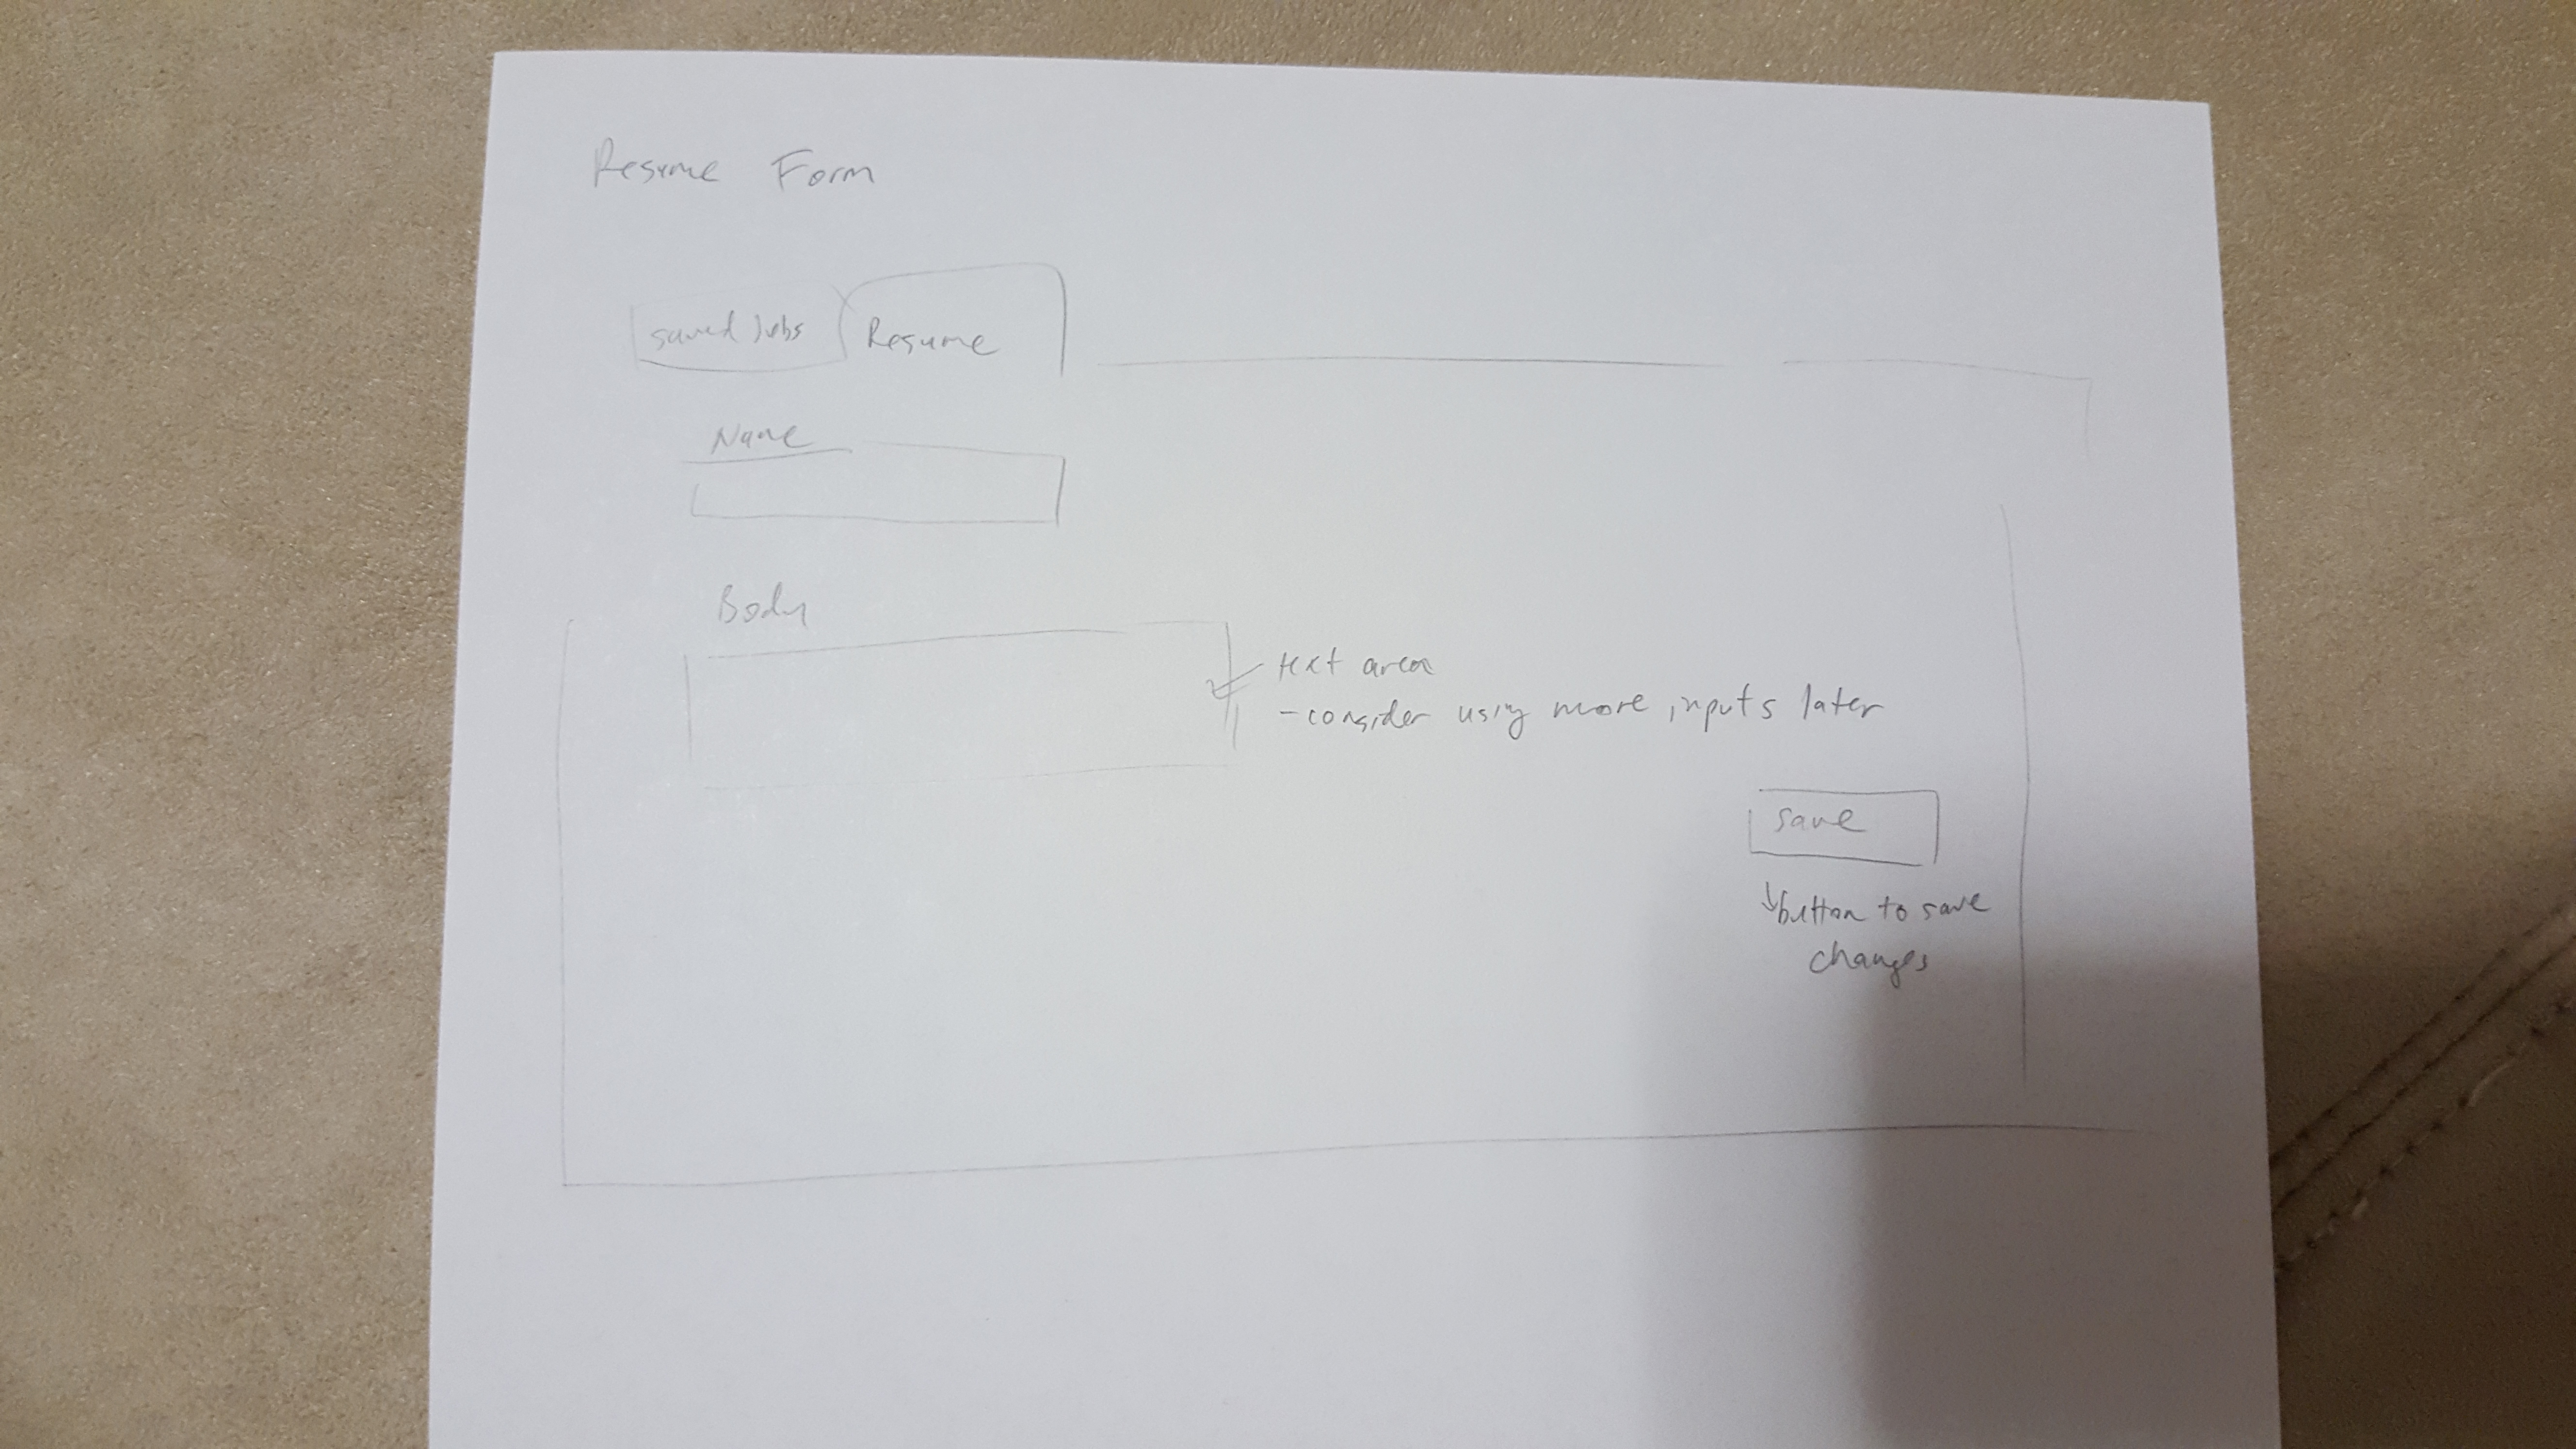 Resume Form
saved jobs
Resume
Name
Body
text area
- consider using more inputs later
save
button to save
changes